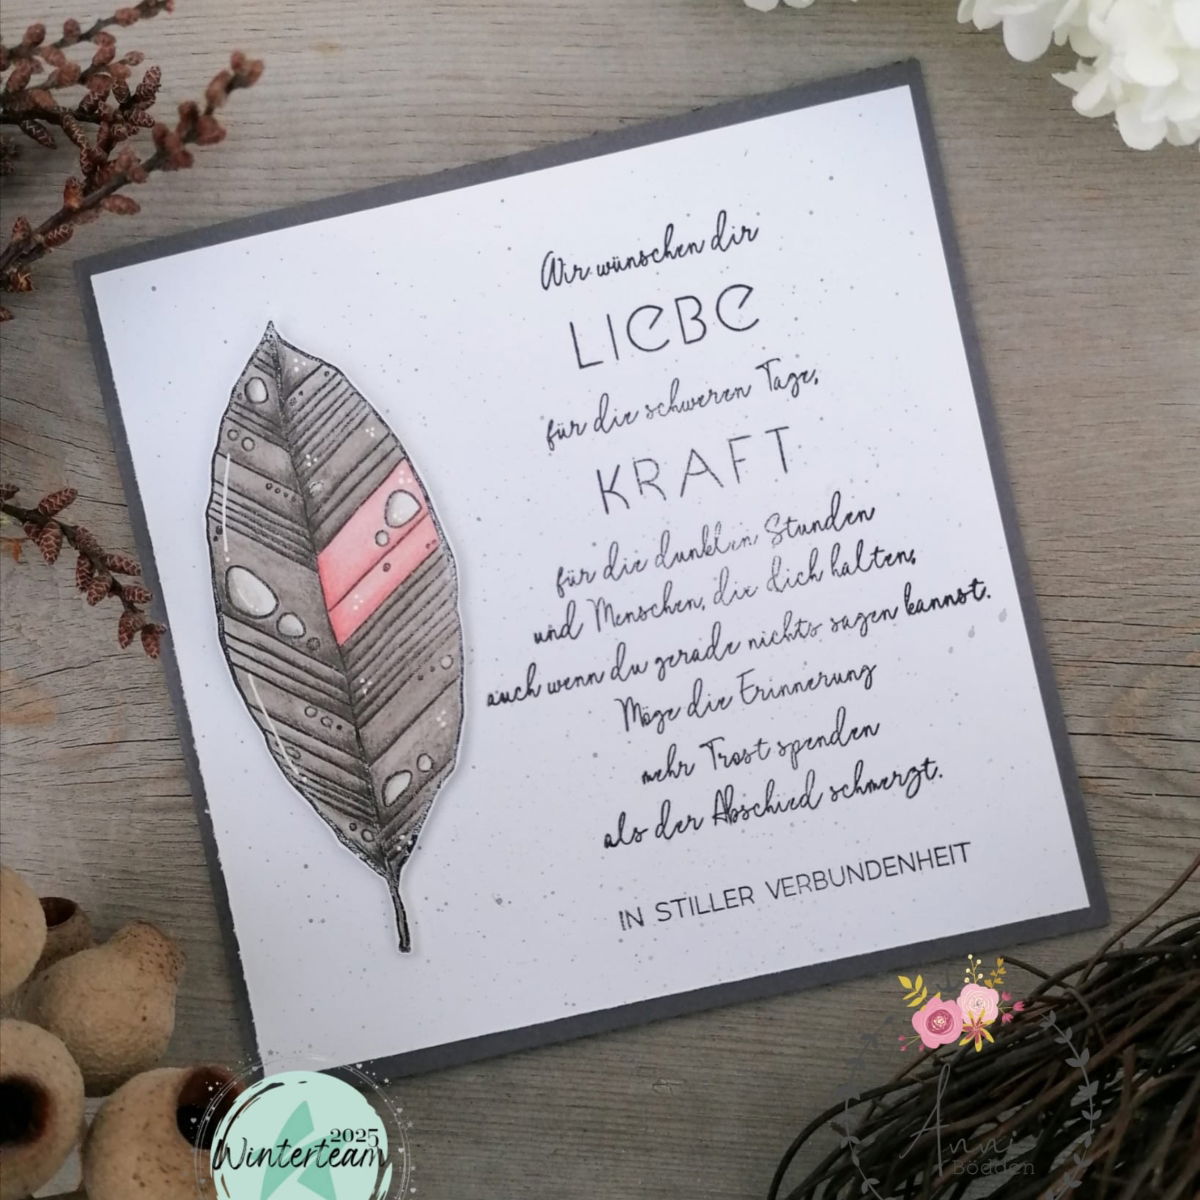 Wir wünschen dir
LIEBE
für die schweren Tage,
KRAFT
für die dunklen Stunden
und Menschen, die dich halten,
auch wenn du gerade nichts sagen kannst.
Möge die Erinnerung
mehr Trost spenden
als der Abschied schmerzt.
IN STILLER VERBUNDENHEIT
2025
Winterteam
Anni
Bödden